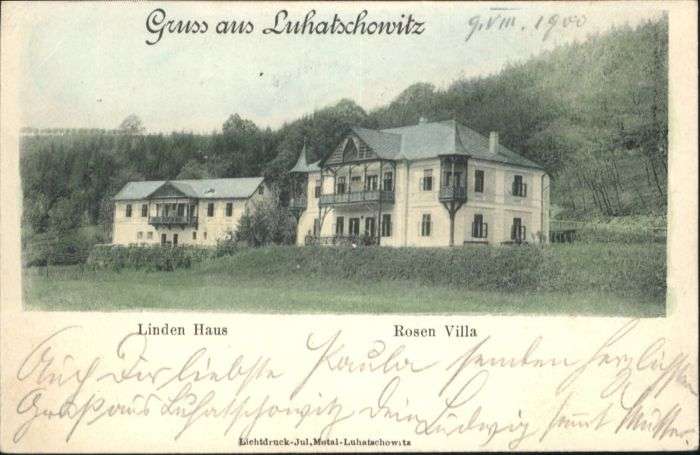 Gruss aus Luhatschowitz
9. VIII. 1900
Linden Haus
Rosen Villa
Auch Dir liebste Paula senden herzlichsten
Gruß aus Luhatschowitz Dein Ludwig sammt Mutter
Lichtdruck-Jul, Motal-Luhatschowitz